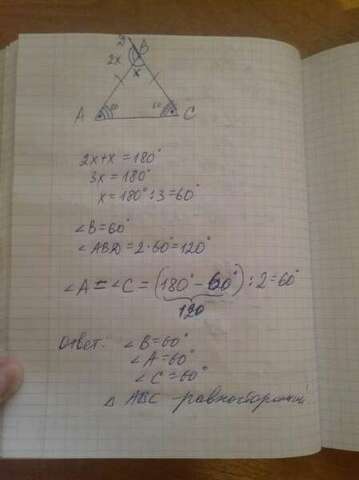 D
B
2x
x
60°
60°
A
C
2x+x=180°
3x=180°
x=180°:3=60°
∠B=60°
∠ABD=2·60°=120°
∠A=∠C=(180°-60°):2=60°
120
Ответ: ∠B=60°
∠A=60°
∠C=60°
△ ABC - равносторонний.